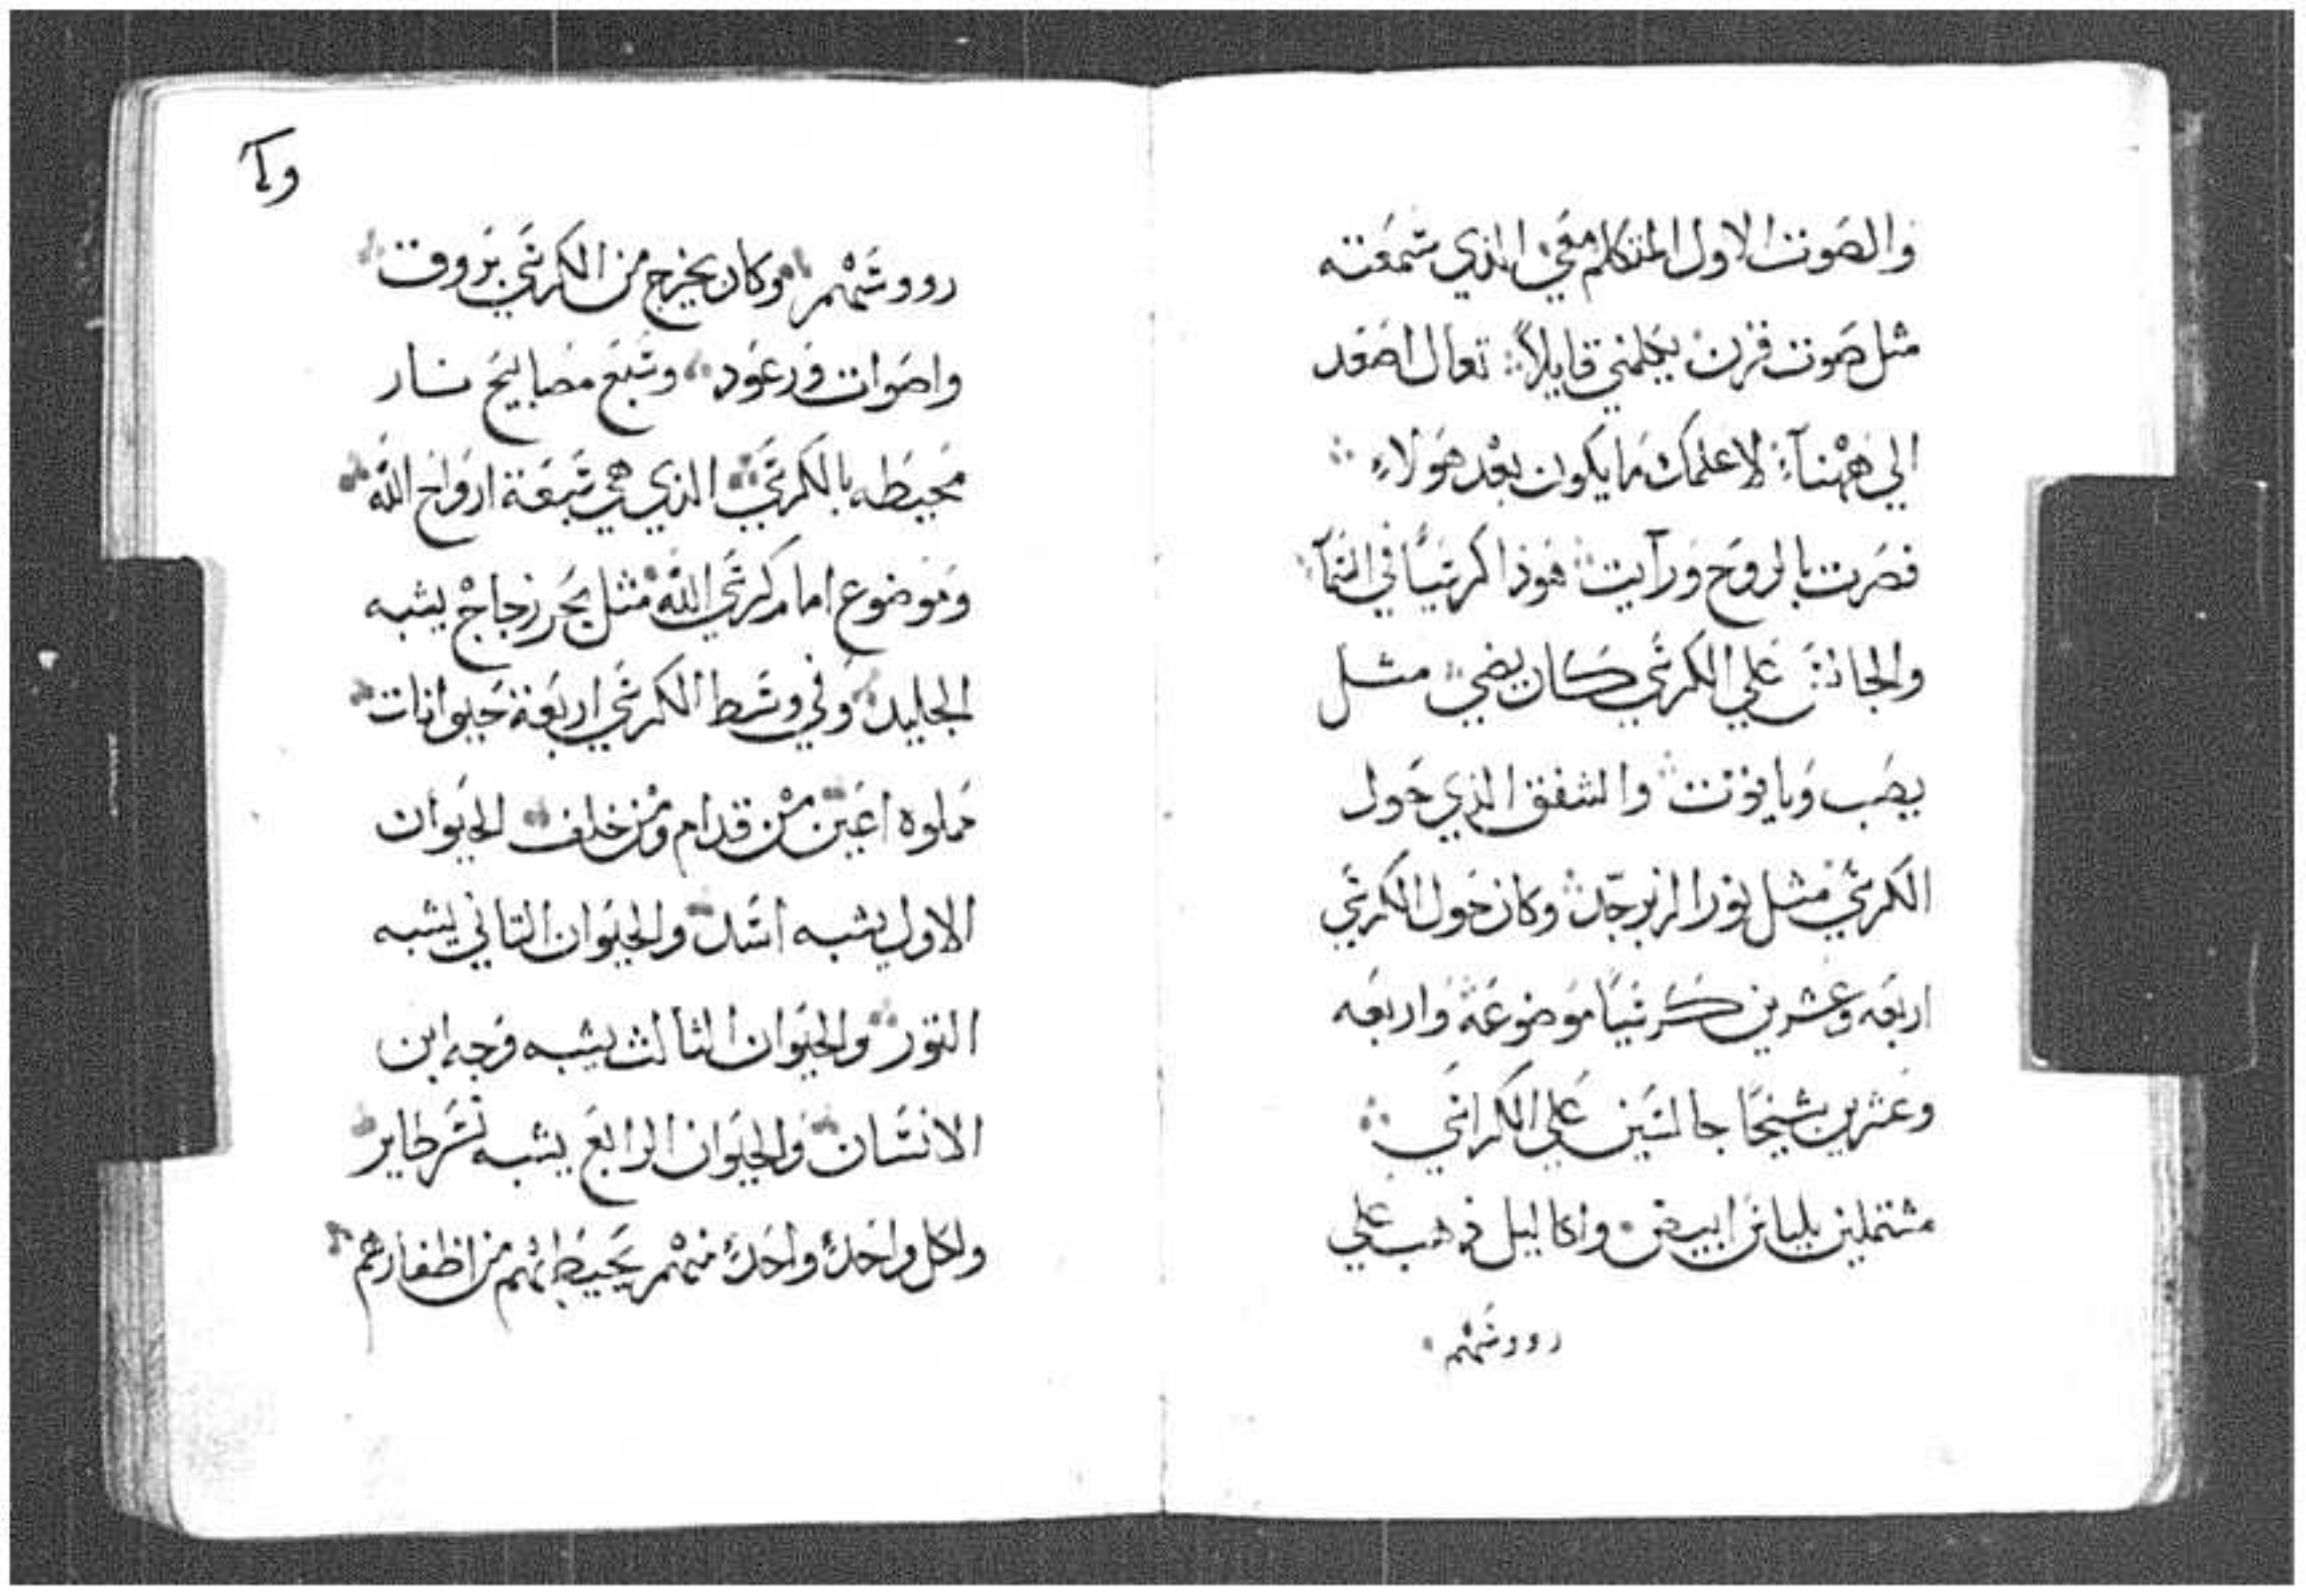 والصوت الاول المتكلم معي الذي سمعته
مثل صوت قرن يكلمني قايلاً تعال اصعد
الي ههنآ لاعلمك ما يكون بعد هولاء
فصرت بالروح ورآيت هوذا كرسياً في السمآ
والجالس علي الكرسي كان يضي مثل
يصب وياقوت والشفق الذي حول
الكرسي مثل نور الزبرجد وكان حول الكرسي
اربعه وعشرين كرسياً موضوعة واربعه
وعشرين شيخاً جالسين علي الكراسي
مشتملين بلباس ابيض واكاليل ذهب علي
رووسهم
رووسهم وكان يخرج من الكرسي بروق
واصوات ورعود وسبع مصابيح نار
محيطه بالكرسي الذي هي سبعة ارواح الله
وموضوع امام كرسي الله مثل بحر زجاج يشبه
الجليد وفي وسط الكرسي اربعة حيوانات
مملوه اعين من قدام ومن خلف الحيوان
الاول يشبه اسد والحيوان التاني يشبه
التور والحيوان الثالث يشبه وجه ابن
الانسان والحيوان الرابع يشبه نسر طاير
ولكل واحد واحد منهم يحيط بهم من اظفارهم